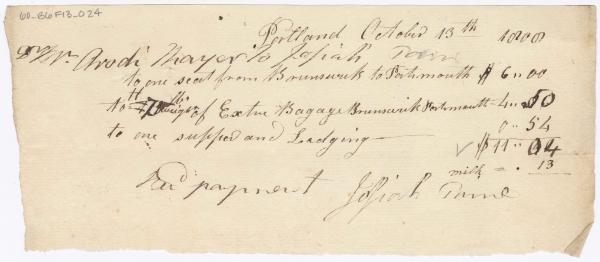 60-B6F13-024
Portland October 13th 1808
Dr Mr Arodi Thayer to Josiah
to one seat from Brunswick to Portsmouth $ 6 .. 00
to of Extre Bagage Brunswick Portsmouth - 4 .. 50
to one supper and Lodging 0 .. 54
$ 11 .. 04
milk = . 13
Recd payment Josiah